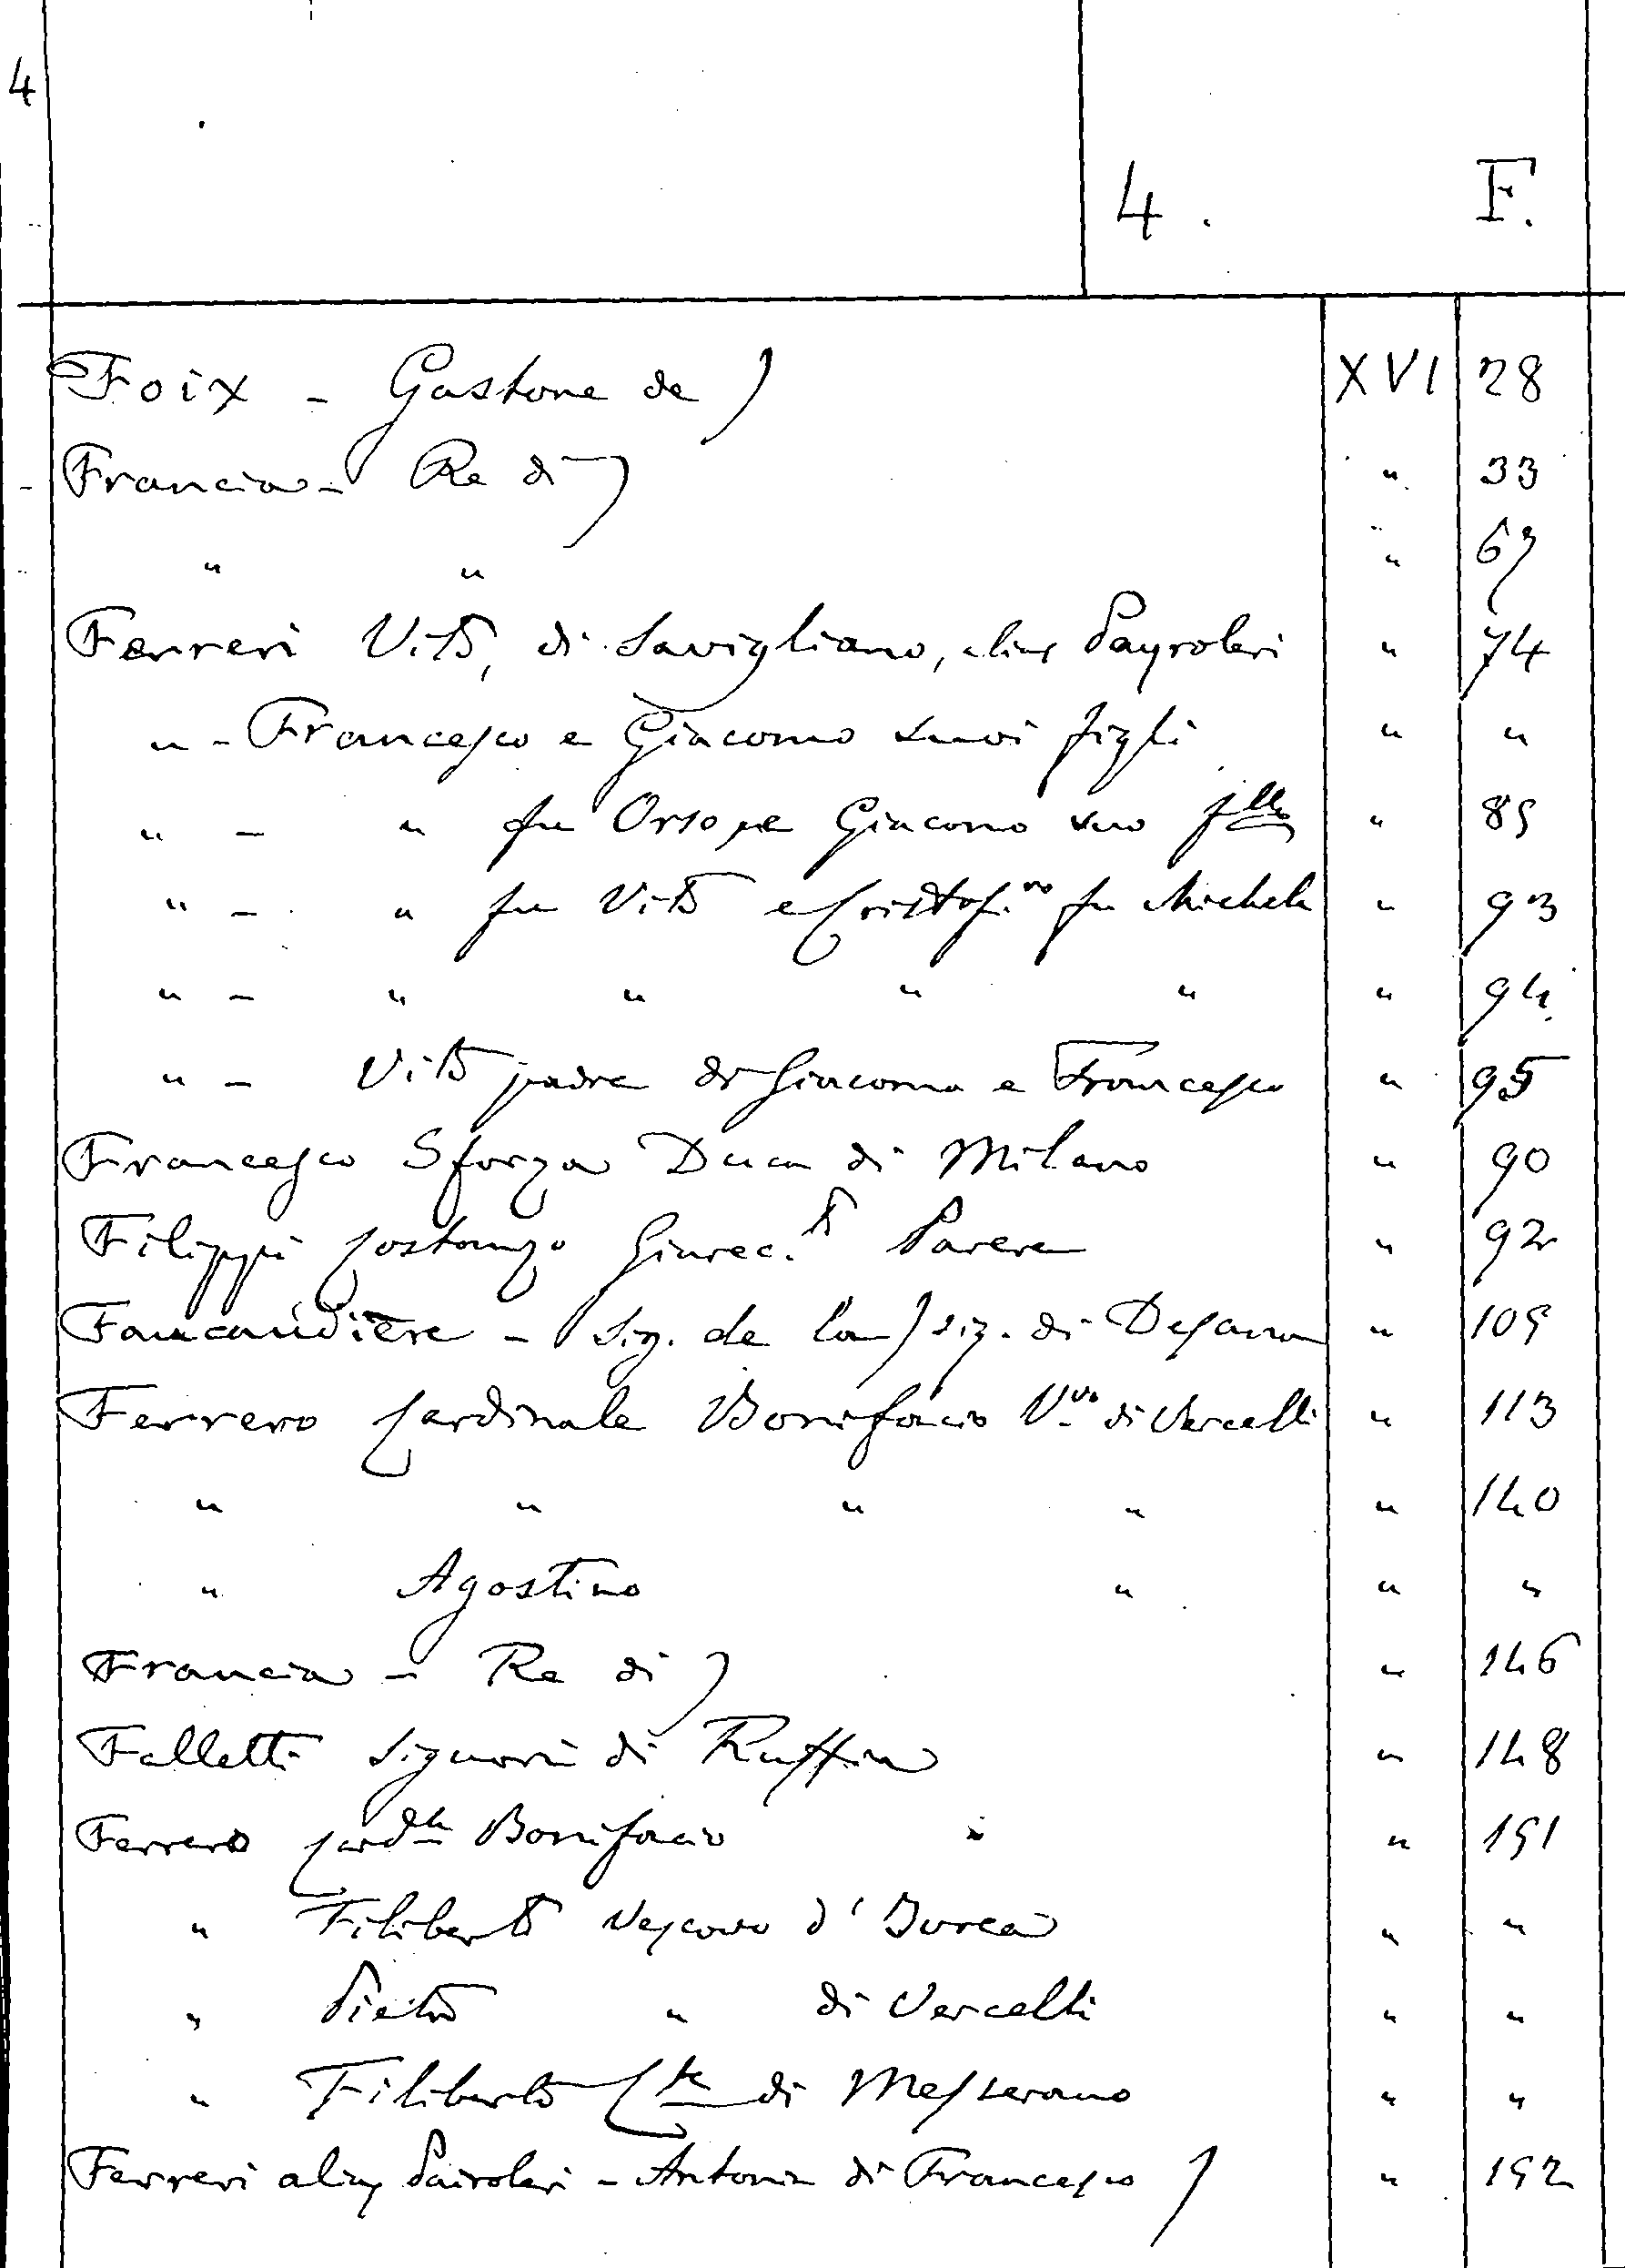 4
4. F.
Foix - Gastone de ) XVI 28
Francia - Re di ) " 33
" " " 67
Ferreri Vito, di Savigliano, alias Payroleri " 74
" - Francesco e Giacomo suoi figli " "
" - " fu Orso e Giacomo suo fllo " 89
" - " fu Vito e Cristof.no fu Michele " 93
" - " " " " " 94
" - Vito padre di Giacomo e Francesco " 95
Francesco Sforza Duca di Milano " 90
Filippi Costanzo Giurec.to Parere " 92
Faucaudière - Sig. de la ) sig. di Desana " 109
Ferrero Cardinale Bonifacio Vvo di Vercelli " 113
" " " " " 140
" Agostino " " "
Francia - Re di ) " 146
Falletti Signori di Ruffia " 148
Ferrero Cardle Bonifacio " 191
" Filiberto Vescovo d'Ivrea " "
" Pietro " di Vercelli " "
" Filiberto Cte di Messerano " "
Ferreri alias Pairoleri - Antonio di Francesco ) " 192